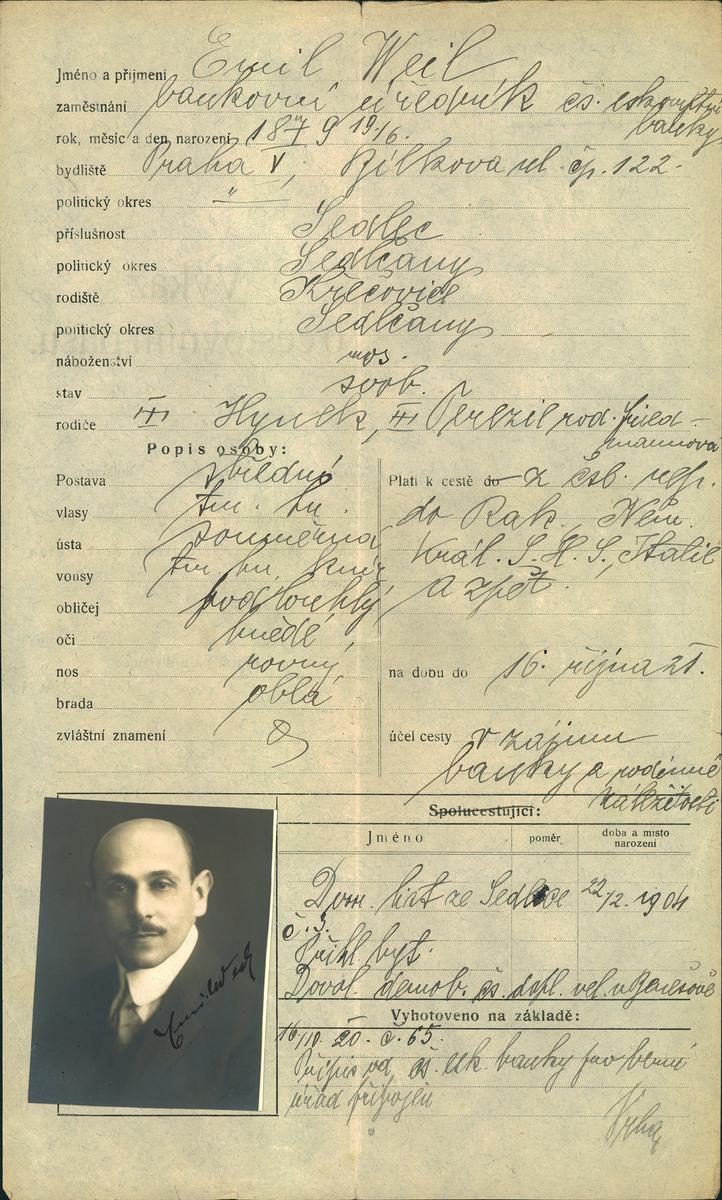 Jméno a příjmení Emil Weil
zaměstnání bankovní úředník čs. eskomptní
banky
rok, měsíc a den narození 1877 9 19/6.
bydliště Praha V, Bílkova ul. čp. 122.
politický okres "
příslušnost Sedlec
politický okres Sedlčany
rodiště Křečovice
politický okres Sedlčany
náboženství mos.
stav svob.
rodiče Hynek, Terezie rod. Fried-
mannova
Popis osoby:
Postava střední
vlasy tm. hn.
ústa souměrná
vousy tm. hn. knír
obličej podlouhlý
oči hnědé
nos rovný
brada oblá
zvláštní znamení
Platí k cestě do z čsl. rep.
do Rak., Něm.
Král. S. H. S., Italie
a zpět.
na dobu do 16. října 21.
účel cesty v zájmu
banky a rodinné
záležitosti
Spolucestující:
Jméno poměr doba a místo
narození
Dom. list ze Sedlce 22/2. 1904
č. 3.
Přihl. byt.
Dovol. demob. čs. dopl. vel. v Benešově
Vyhotoveno na základě:
16/10. 20. č. 65.
Přípis od čs. esk. banky pro berní
úřad připojen
Emil Weil